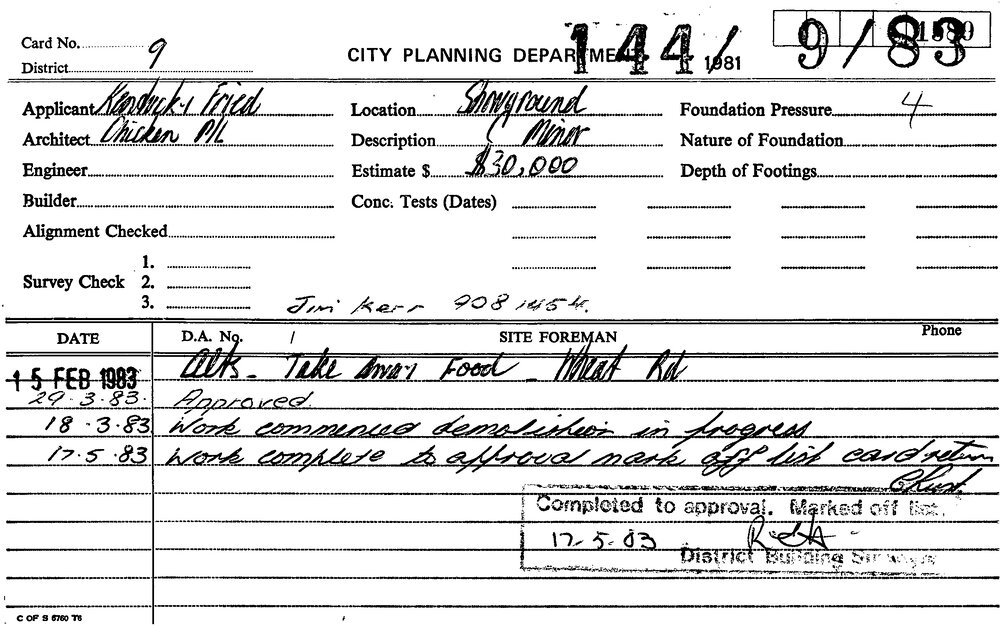 Card No. 9
District
CITY PLANNING DEPARTMENT 144/ 1981 9/83
Applicant Kentucky Fried
Architect Chicken P/L
Engineer
Builder
Alignment Checked
Survey Check 1.
2.
3.
Location Showground
Description Minor
Estimate $ $30,000
Conc. Tests (Dates)
Foundation Pressure 4
Nature of Foundation
Depth of Footings
Jim Kerr 908 1454.
DATE D.A. No. SITE FOREMAN Phone
15 FEB 1983 Alts - Take Away Food - Wheat Rd
29.3.83. Approved.
18.3.83 Work commenced demolishion in progress
17.5.83 Work complete to approval mark off list card return
Completed to approval. Marked off list.
17.5.83
District Building Surveyor
C OF S 6760 T6